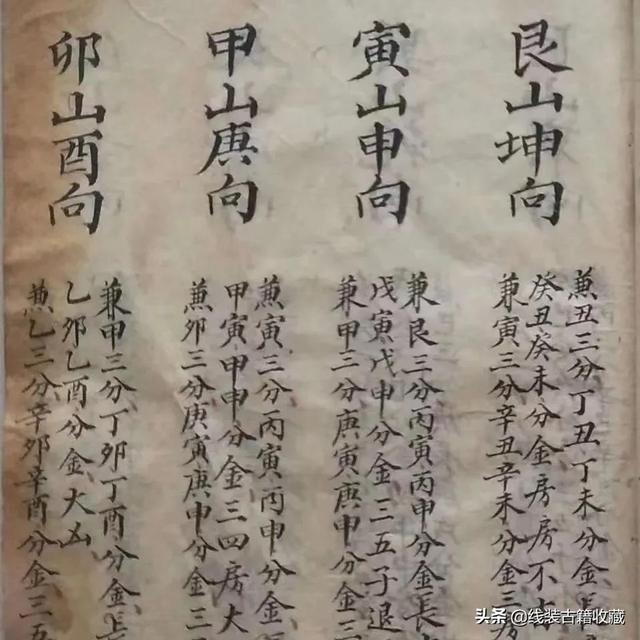 艮山坤向
兼丑三分丁丑丁未分金長
癸丑癸未分金房房不
兼寅三分辛丑辛未分金三
寅山申向
兼艮三分丙寅丙申分金長
戊寅戊申分金三五子退
兼甲三分庚寅庚申分金三
甲山庚向
兼寅三分丙寅丙申分金
甲寅甲申分金三四房大
兼卯三分庚寅庚申分金三
卯山酉向
兼甲三分丁卯丁酉分金長
乙卯乙酉分金大凶
兼乙三分辛卯辛酉分金三五
头条@线装古籍收藏